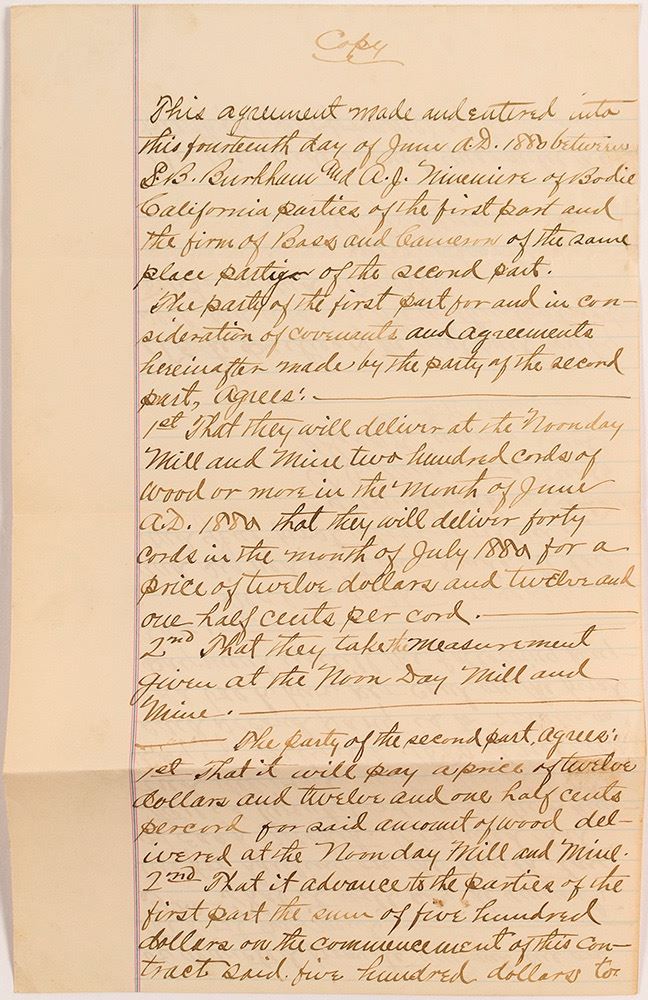 Copy
This agreement made and entered into
this fourteenth day of June A.D. 1880 between
S. B. Burkham and A. J. of Bodie
California parties of the first part and
the firm of Bass and Cameron of the same
place parties of the second part.
The party of the first part for and in con-
sideration of covenants and agreements
hereinafter made by the party of the second
part, agrees:
1st That they will deliver at the Noonday
Mill and Mine two hundred cords of
wood or more in the month of June
A.D. 1880 that they will deliver forty
cords in the month of July 1880 for a
price of twelve dollars and twelve and
one half cents per cord.
2nd That they take the measurement
given at the Noon Day Mill and
Mine.
The party of the second part, agrees:
1st That it will pay a price of twelve
dollars and twelve and one half cents
per cord for said amount of wood del-
ivered at the Noonday Mill and Mine.
2nd That it advance to the parties of the
first part the sum of five hundred
dollars on the commencement of this con-
tract said five hundred dollars to